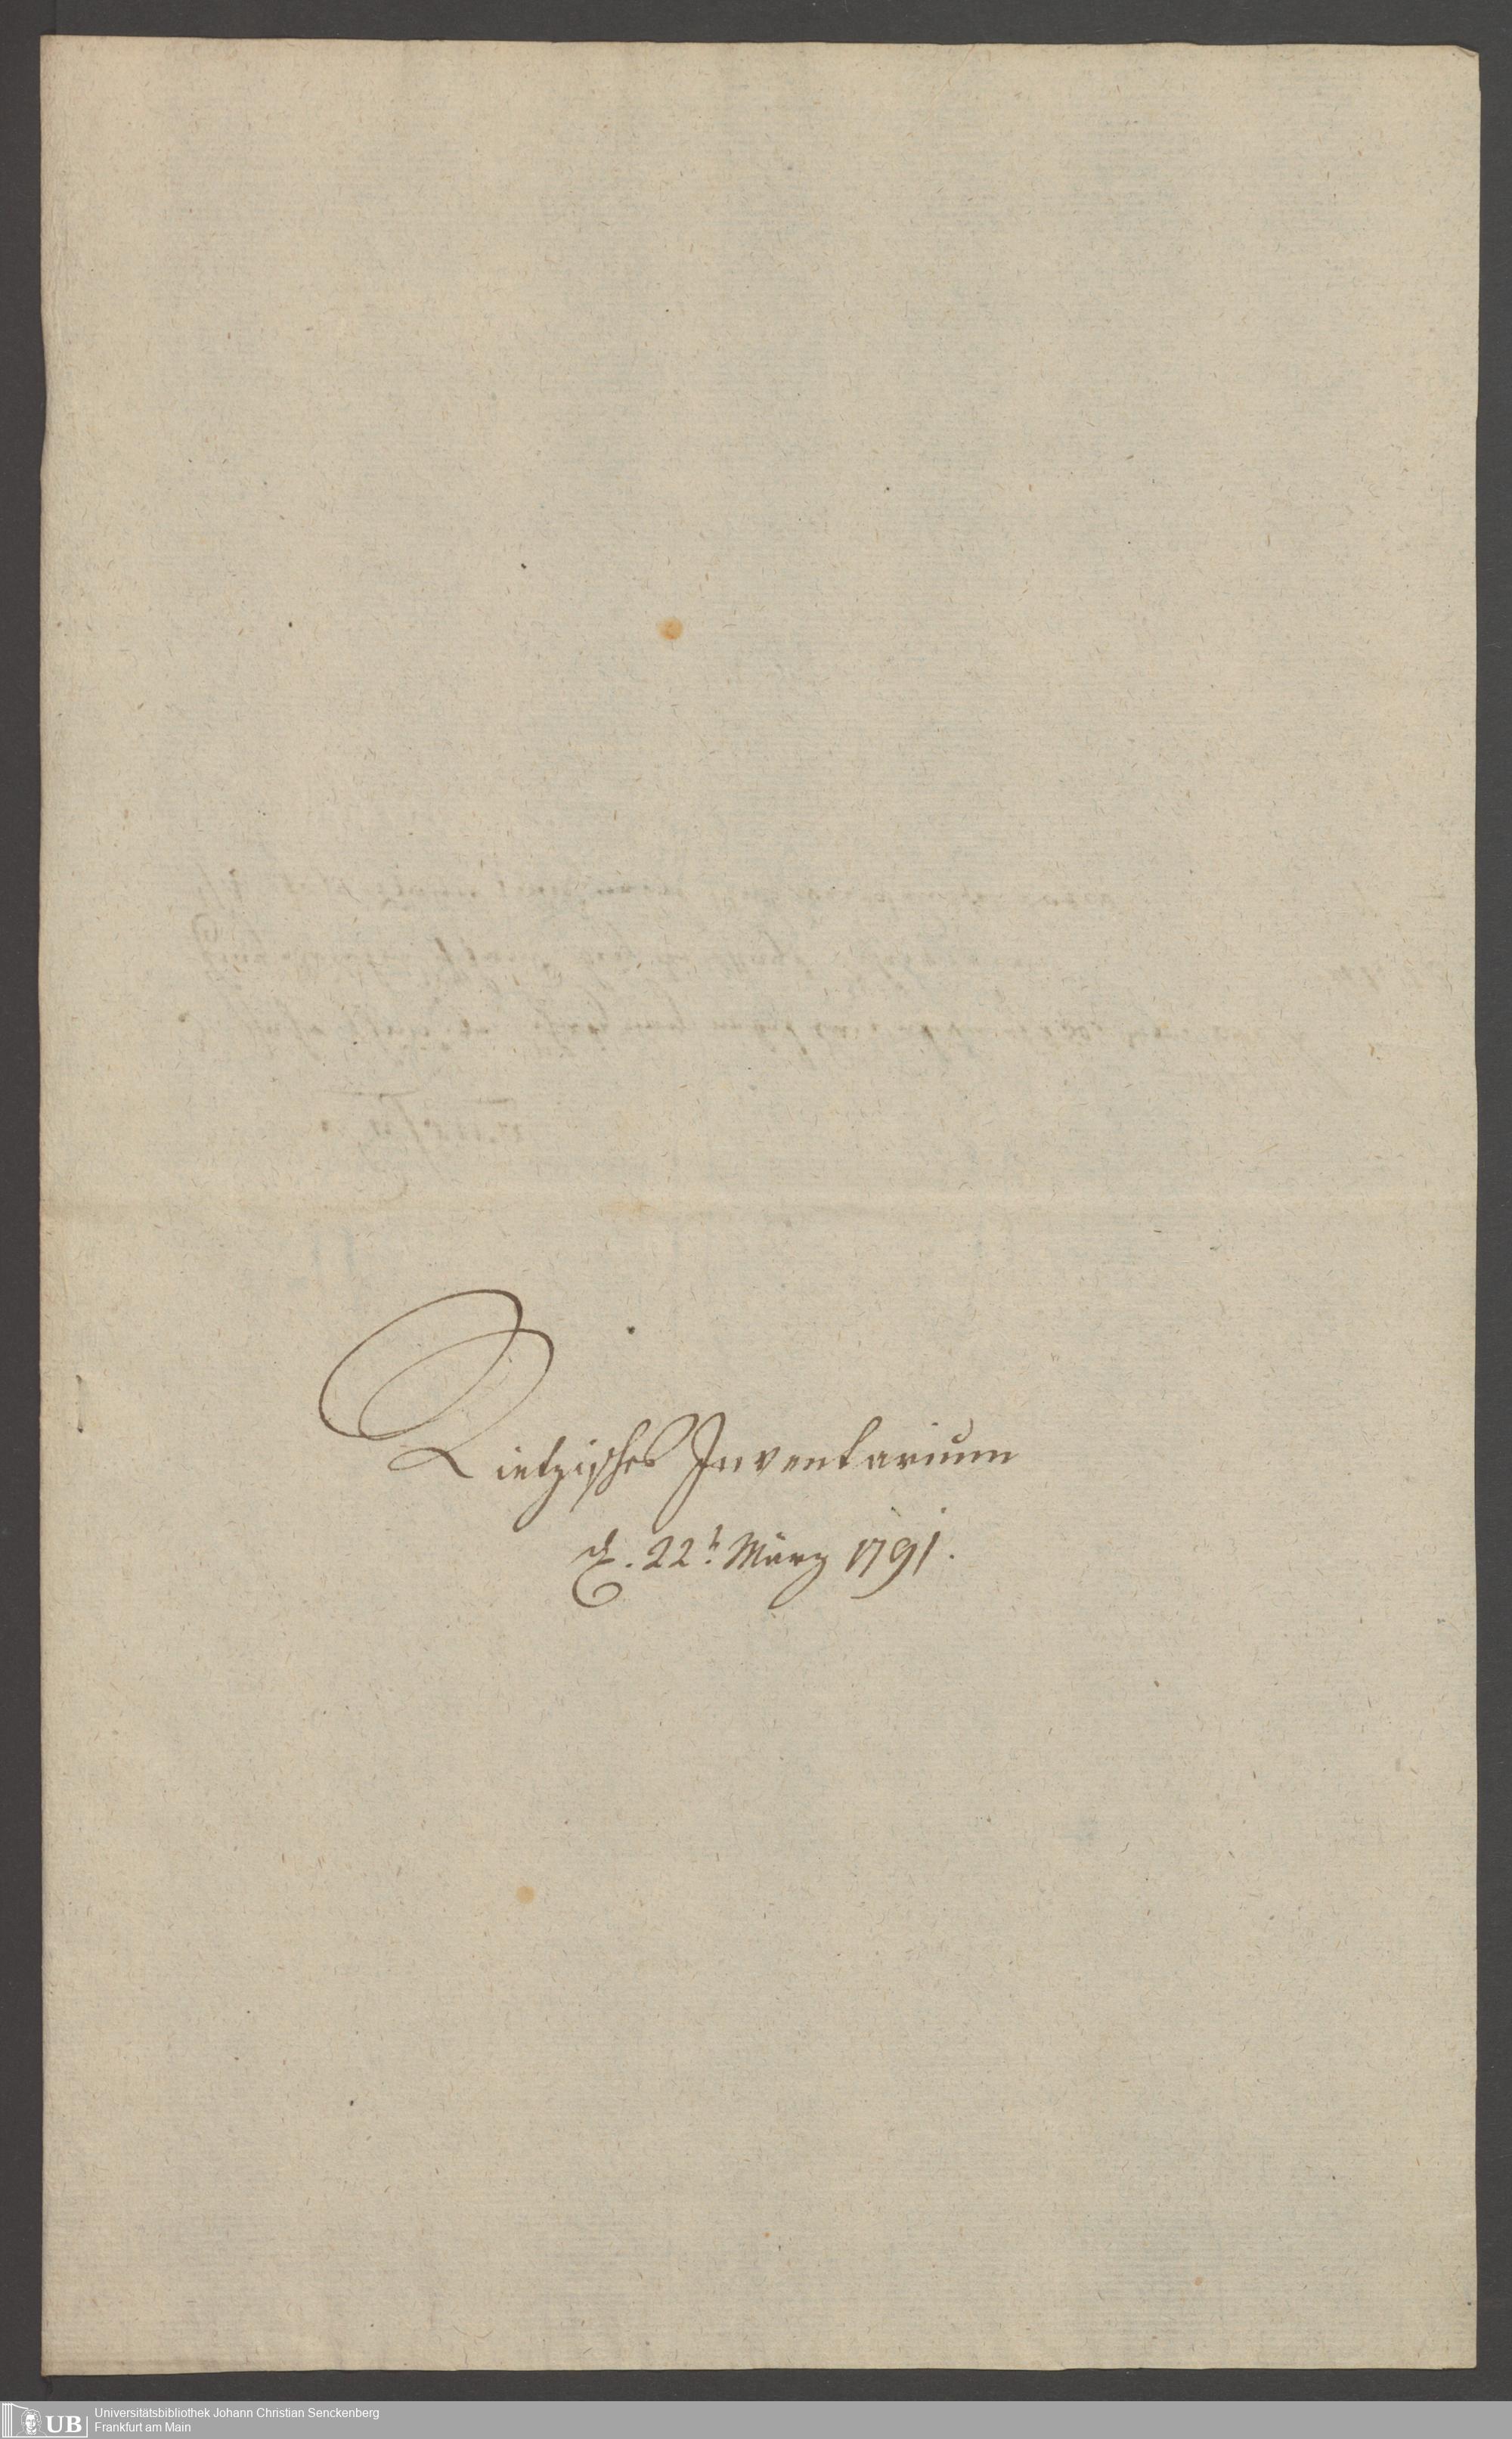 Dietzisches Inventarium
d. 22t. März 1791.
UB
Universitätsbibliothek Johann Christian Senckenberg
Frankfurt am Main